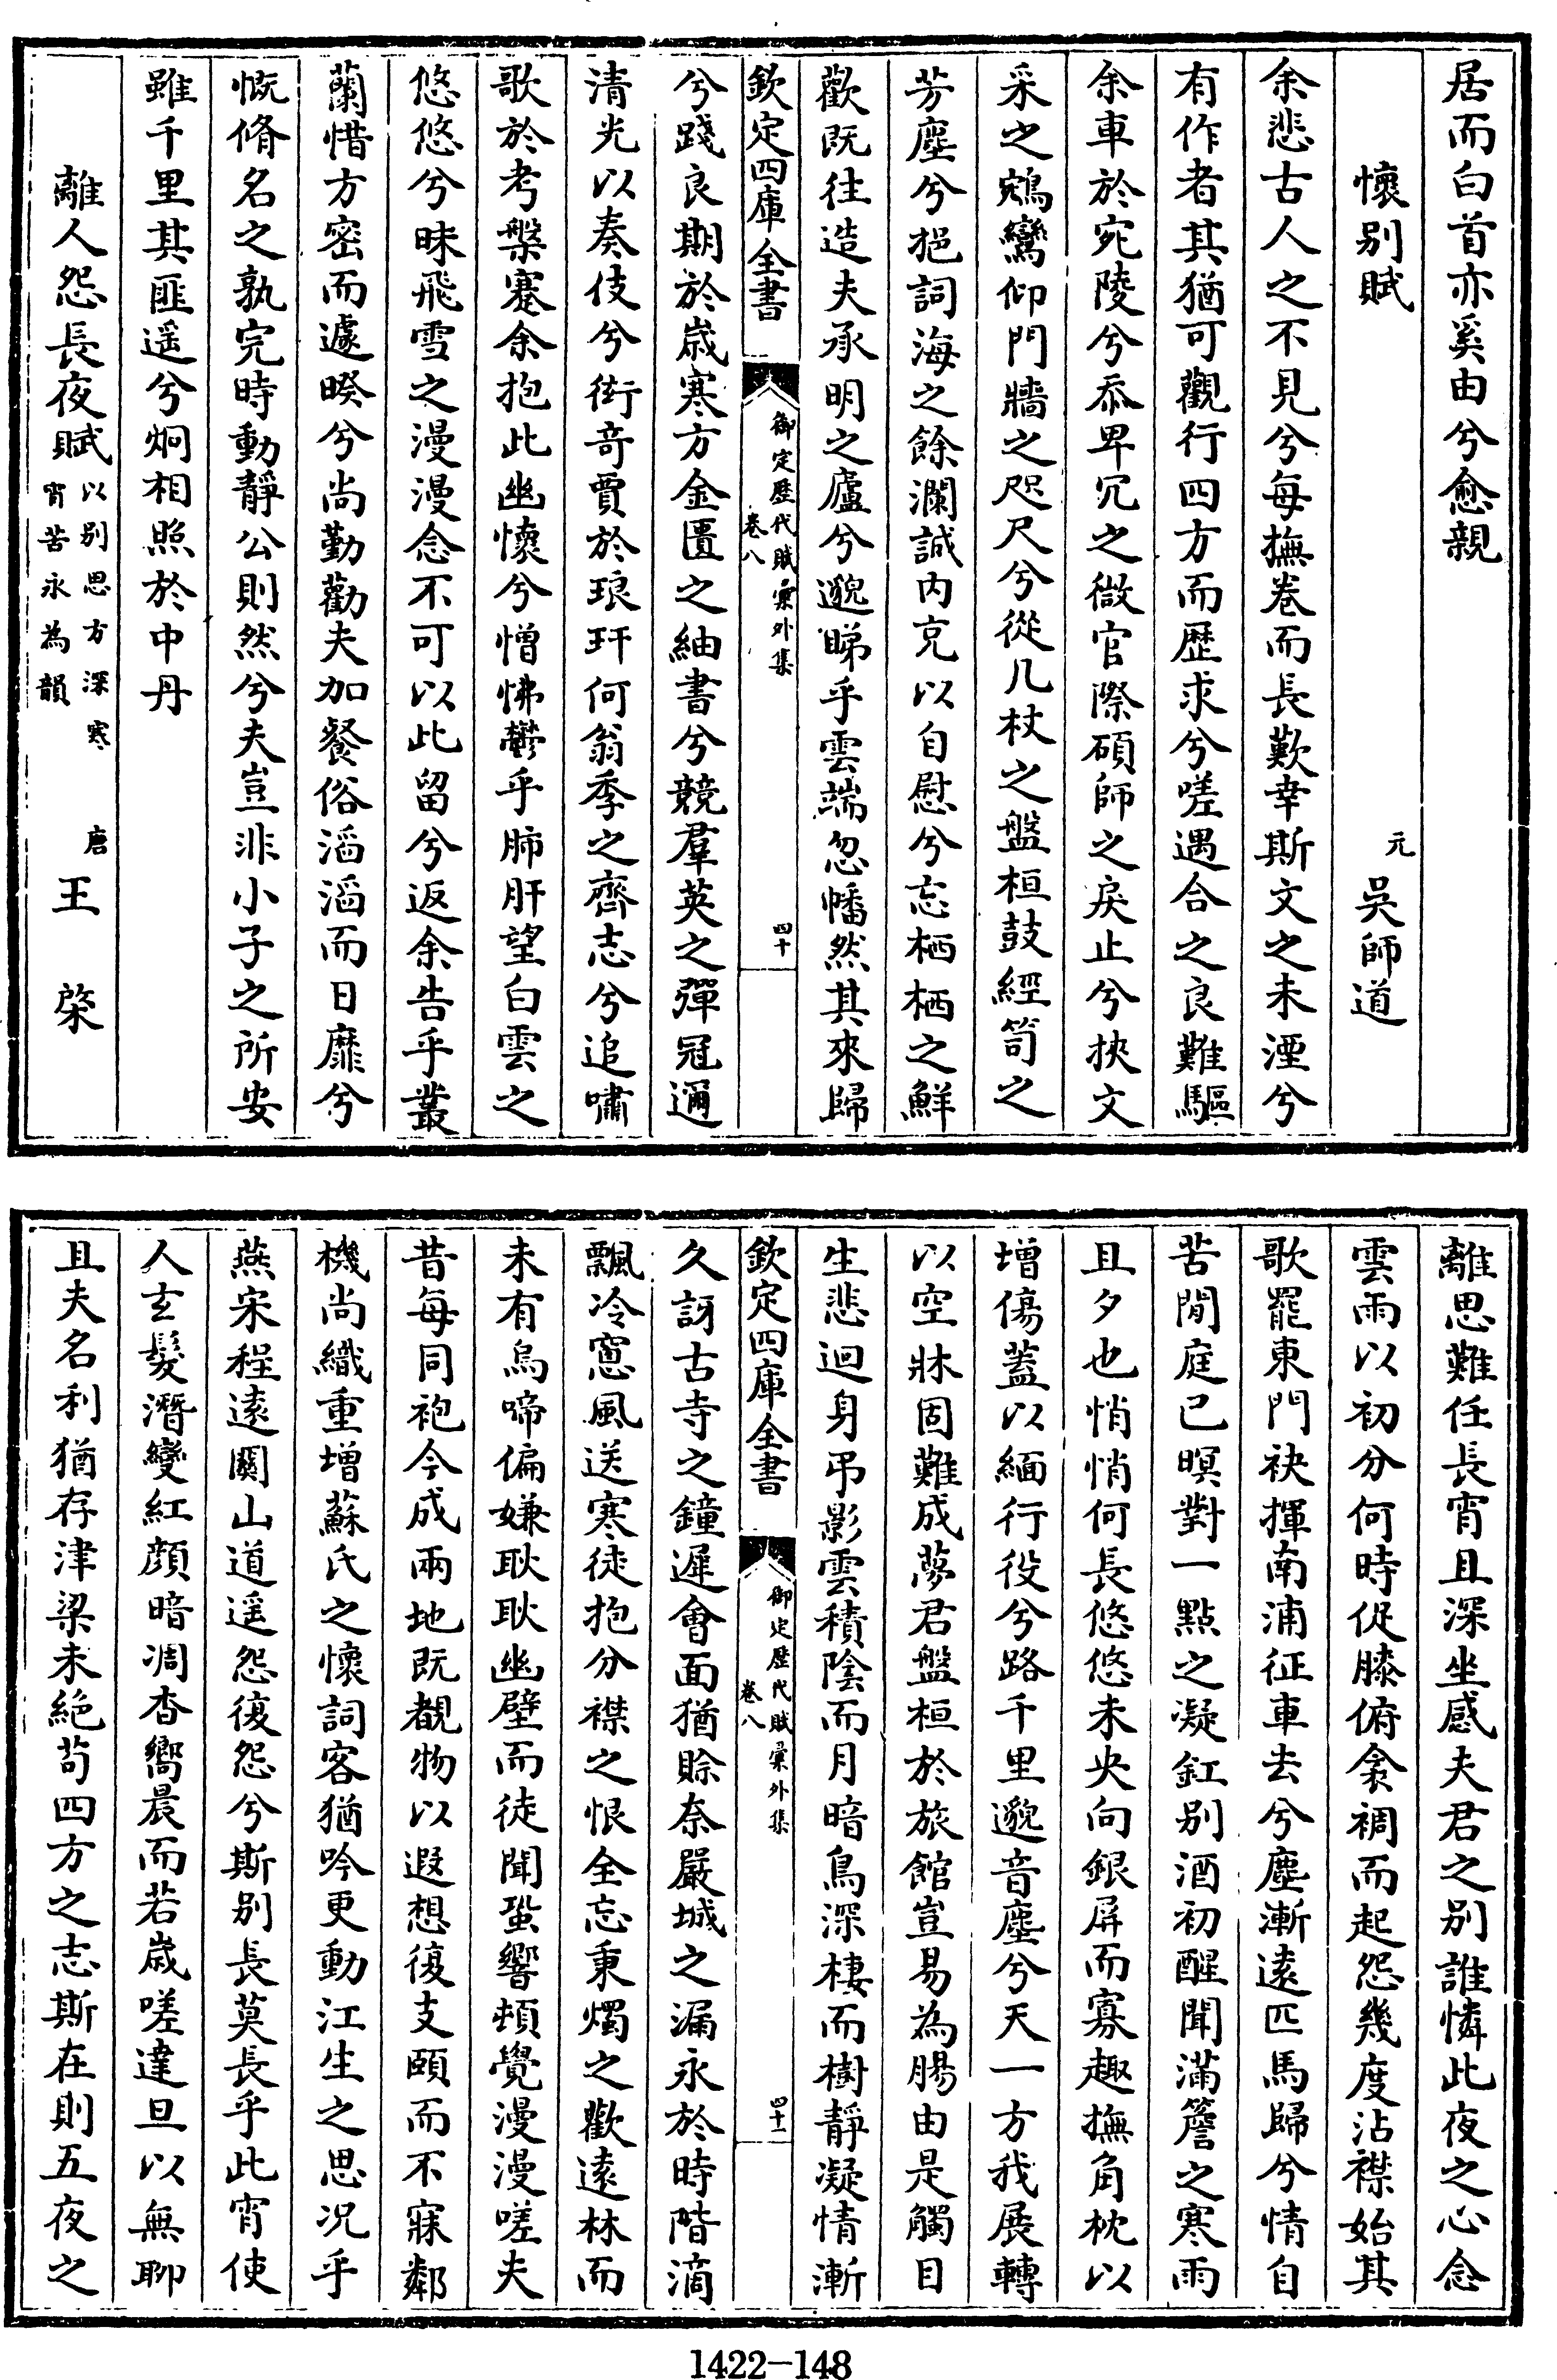 居而白首亦奚由兮愈親
懷别賦 元 吳師道
余悲古人之不見兮每撫卷而長歎幸斯文之未湮兮
有作者其猶可觀行四方而歴求兮嗟遇合之良難驅
余車於宛陵兮忝畀冗之微官際碩師之戾止兮挾文
采之鵷鸞仰門牆之咫尺兮從几杖之盤桓鼓經笥之
芳塵兮挹詞海之餘瀾誠内充以自慰兮忘栖栖之鮮
歡既往造夫承明之廬兮邈睇乎雲端忽幡然其來歸
欽定四庫全書 御定歴代賦彚外集 卷八 四十
兮踐良期於歲寒方金匱之紬書兮競羣英之彈冠邇
清光以奏伎兮衒竒賈於琅玕何翁季之齊志兮追嘯
歌於考槃蹇余抱此幽懷兮憎怫鬱乎肺肝望白雲之
悠悠兮昧飛雪之漫漫念不可以此留兮返余告乎叢
蘭惜方密而遽暌兮尚勤勸夫加餐俗滔滔而日靡兮
慨脩名之孰完時動靜公則然兮夫豈非小子之所安
雖千里其匪遥兮炯相照於中丹
離人怨長夜賦 以别思方深寒宵苦永為韻 唐 王棨
離思難任長宵且深坐感夫君之别誰憐此夜之心念
雲雨以初分何時促膝俯衾裯而起怨幾度沾襟始其
歌罷東門袂揮南浦征車去兮塵漸遠匹馬歸兮情自
苦閒庭已暝對一點之凝釭别酒初醒聞滿簷之寒雨
且夕也悄悄何長悠悠未央向銀屏而寡趣撫角枕以
增傷蓋以緬行役兮路千里邈音塵兮天一方我展轉
以空牀固難成夢君盤桓於旅館豈易為腸由是觸目
生悲迴身弔影雲積陰而月暗鳥深棲而樹靜凝情漸
欽定四庫全書 御定歴代賦彚外集 卷八 四十一
久訝古寺之鐘遲會面猶賒奈嚴城之漏永於時階滴
飄冷窓風送寒徒抱分襟之恨全忘秉燭之歡遠林而
未有烏啼偏嫌耿耿幽壁而徒聞蛩響頓覺漫漫嗟夫
昔每同袍今成兩地既覩物以遐想復支頤而不寐鄰
機尚織重增蘇氏之懷詞客猶吟更動江生之思况乎
燕宋程遠關山道遥怨復怨兮斯别長莫長乎此宵使
人玄髮潛變紅顔暗凋杳嚮晨而若歲嗟達旦以無聊
且夫名利猶存津梁未絶苟四方之志斯在則五夜之
1422-148